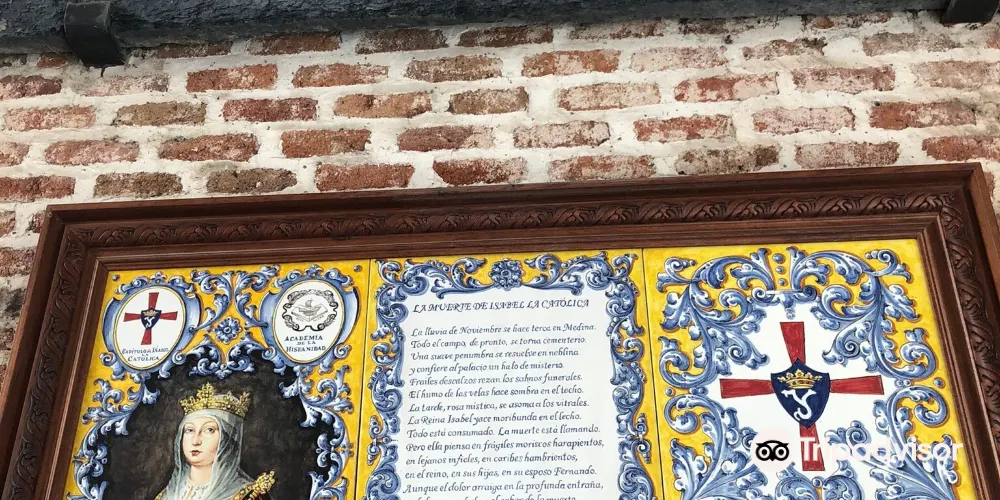 CAPITULO ISABEL
LA
CATOLICA
ACADEMIA
DE LA
HISPANIDAD
LA MUERTE DE ISABEL LA CATÓLICA
La lluvia de Noviembre se hace terca en Medina.
Todo el campo, de pronto, se torna cementerio.
Una suave penumbra se resuelve en neblina
y confiere al palacio un halo de misterio.
Frailes descalzos rezan los salmos funerales.
El humo de las velas hace sombra en el techo.
La tarde, rosa mística, se asoma a los vitrales.
La Reina Isabel yace moribunda en el lecho.
Todo está consumado. La muerte está llamando.
Pero ella piensa en frágiles moriscos harapientos,
en lejanos infieles, en caribes hambrientos,
en el reino, en sus hijas, en su esposo Fernando.
Aunque el dolor arraiga en la profunda entraña,
Tripadvisor